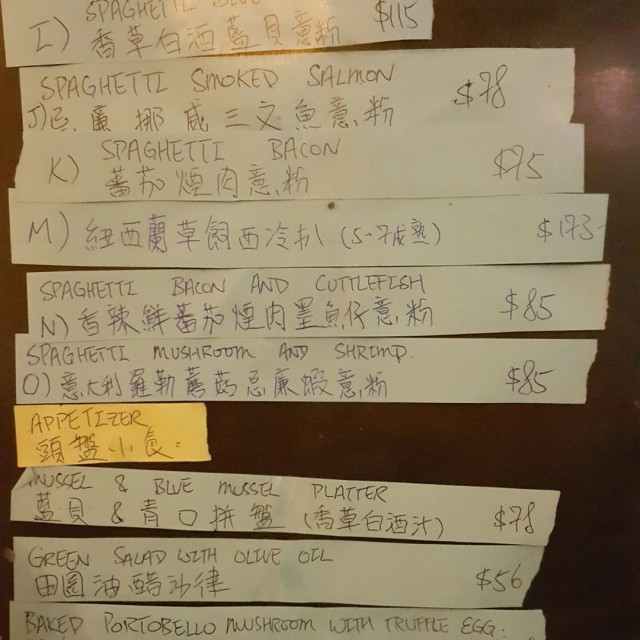 SPAGHETTI BLUE
I) 香草白酒藍貝意粉 $115
SPAGHETTI SMOKED SALMON
J) 忌廉挪威三文魚意粉 $78
SPAGHETTI BACON
K) 蕃茄煙肉意粉 $75
M) 紐西蘭草飼西冷扒 (5-7成熟) $173
SPAGHETTI BACON AND CUTTLEFISH
N) 香辣鮮蕃茄煙肉墨魚仔意粉 $85
SPAGHETTI MUSHROOM AND SHRIMP
O) 意大利羅勒蘑菇忌廉蝦意粉 $85
APPETIZER
頭盤小食:
MUSSEL & BLUE MUSSEL PLATTER
藍貝 & 青口拼盤 (香草白酒汁) $78
GREEN SALAD WITH OLIVE OIL
田園油醋沙律 $56
BAKED PORTOBELLO MUSHROOM WITH TRUFFLE EGG.